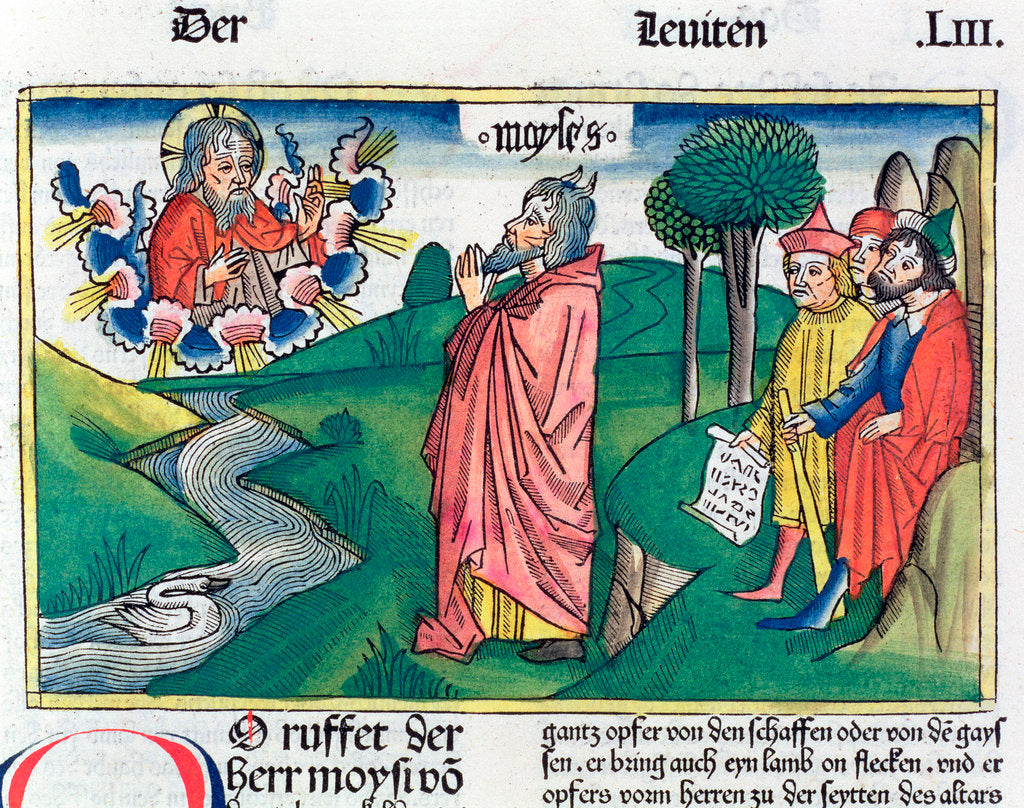 Der Leuiten .LIII.
◦moyſes◦
O ruffet der
Herr moyſi võ
gantz opfer von den ſchaffen oder von dẽ gayſ
ſen. er bring auch eyn lamb on flecken. vnd er
opfers vorm herren zu der ſeytten des altars